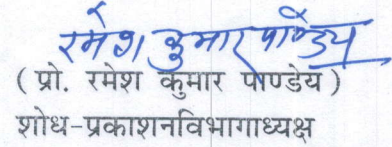 रमेश कुमार पाण्डेय
( प्रो. रमेश कुमार पाण्डेय )
शोध-प्रकाशनविभागाध्यक्ष